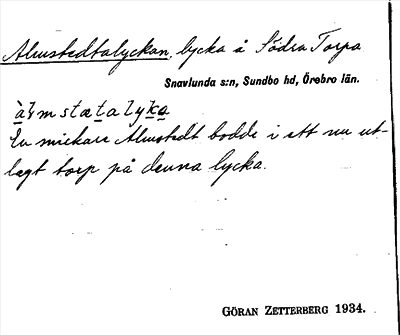 Almstedtalyckan, lycka å Södra Torpa
Snavlunda s:n, Sundbo hd, Örebro län.
En snickare Almstedt bodde i ett nu ut-
lagt torp på denna lycka.
GÖRAN ZETTERBERG 1934.